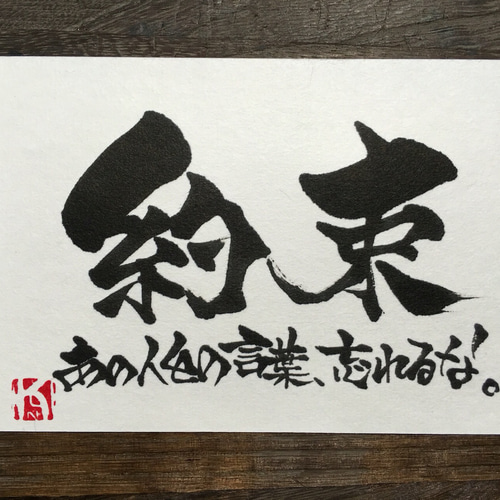 約束
あの人との言葉、忘れるな。